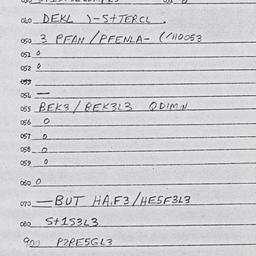 040 DEKL )-S+TERCL .
050 3 PFAN/PFENLA- (/110053
051 0
052 0
053
054 —
055 BEK3/BEK3L3 QDIMIN
056 0
057 0
058 0
059 0
060 0
070 —BUT HA,F3/HE5F3L3
080 S+1S3L3
900 P2RE5GL3